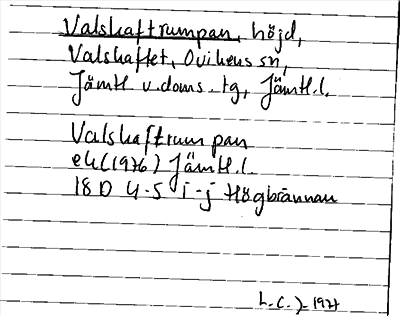 Valskaftrumpan, höjd,
Valskaftet, Ovikens sn,
Jämtl. v. doms. tg, Jämtl. l.
Valskaftrumpan
ek (1976) Jämtl. l.
18D 4-5 i-j Högbrännan
L.C.J. 1977